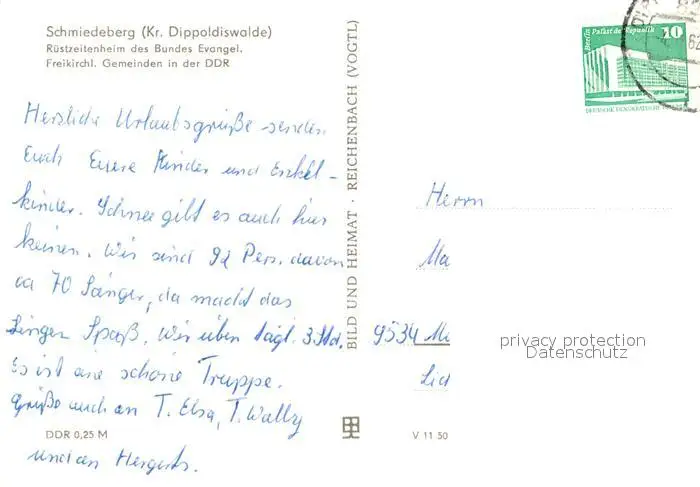 Schmiedeberg (Kr. Dippoldiswalde)
Rüstzeitenheim des Bundes Evangel.
Freikirchl. Gemeinden in der DDR
Herzliche Urlaubsgrüße senden
Euch Euere Kinder und Enkel-
kinder. Schnee gibt es auch hier
keinen. Wir sind 92 Pers. davon
ca 70 Sänger, da macht das
Singen Spaß. Wir üben tägl. 3 Std.
Es ist eine schöne Truppe.
Grüße auch an T. Elsa, T. Wally
und an Hergerts.
DDR 0,25 M
BILD UND HEIMAT · REICHENBACH (VOGTL)
V 11 50
Berlin Palast der Republik
10
DEUTSCHE DEMOKRATISCHE
62
Herrn
Ma
9534 Mi
privacy protection
Datenschutz